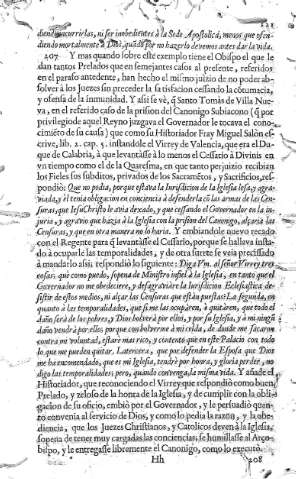 diendo incurrirlas, ni ser inobedientes à la Sede Apostolica, menos que ofendiendo mortalmente à Dios, quando por no hazerlo devemos antes dar la vida.
207 Y mas quando sobre este exemplo tiene el Obispo el que le
dan tantos Prelados que en semejantes casos al presente, referidos
en el paraso antedente, han hecho el mismo juizio de no poder absolver
à los Juezes sin preceder la satisfacion cessando la cotumacia,
y ofensa de la inmunidad. Y assi se vè, q̃ Santo Tomàs de Villa Nueva,
en el referido caso de la prision del Canonigo Subiacono (q̃ por
privilegio de aquel Reyno juzgava el Governador le tocava el conocimiẽto
de su causa) que como su Historiador Fray Miguel Salòn escrive,
lib. 2. cap. 5. instandole el Virrey de Valencia, que era el Duque
de Calabria, à que levantasse à lo menos el Cessatio à Divinis en
vn tiempo como el de la Quaresma, en que tanto perjuizio recibian
los Fieles sus subditos, privados de los Sacramẽtos, y Sacrificios, respondiò:
Que no podia, porque estava la Iurisdicion de la Iglesia lesa, y agraviada,
y èl tenia obligacion en conciencia à defenderla cõ las armas de las Censuras,
que Iesu Christo le avia dexado, y que cessando el Governador en la injuria,
y agravio que hazia à la Iglesia con la prision del Canonigo, alçaria las
Censuras, y que en otra manera no lo haria. Y embiandole nuevo recado
con el Regente para q̃ levantasse el Cessatio, porque se hallava instado
à ocuparle las temporalidades, y de otra suerte se veìa precissado
à mandarlo assi: respondiò lo siguiente: Diga Vm. al señor Virrey tres
cosas: que como puedo, siendo Ministro infiel à la Iglesia, en tanto que el
Governador no me obedeciere, y desagraviare la Iurisdicion Eclesiastica desistir
de estos medios, ni alçar las Censuras que estàn puestas? La segunda, en
quanto à las temporalidades, que si me las ocuparen, ò quitaren, que todo el
daño serà de los pobres, y Dios bolverà por ellos, y por su Iglesia, y à mi ningun
daño vendrà por ellos; porque con bolverme à mi celda, de donde me sacaron
contra mi voluntad, estarè mas rico, y contento que en este Palacio con todo
lo que me pueden quitar. La tercera, que por defender la Esposa que Dios
me ha encomendado, que es mi Iglesia, tendrè por honra, y gloria perder, no
digo las temporalidades; pero, quando convenga, la misma vida. Y añade el
Historiador, que reconociendo el Virrey que respondiò como buen
Prelado, y zeloso de la honra de la Iglesia, y de cumplir con la obligacion
de su oficio, embiò por el Governador, y le persuadiò quanto
convenia al servicio de Dios, y como lo pedia la razon, y la obediencia,
que los Juezes Christianos, y Catolicos deven à la Iglesia,
sopena de tener muy cargadas las conciencias, se humillasse al Arçobispo,
y le entregasse libremente el Canonigo, como lo executò.
Hh 208